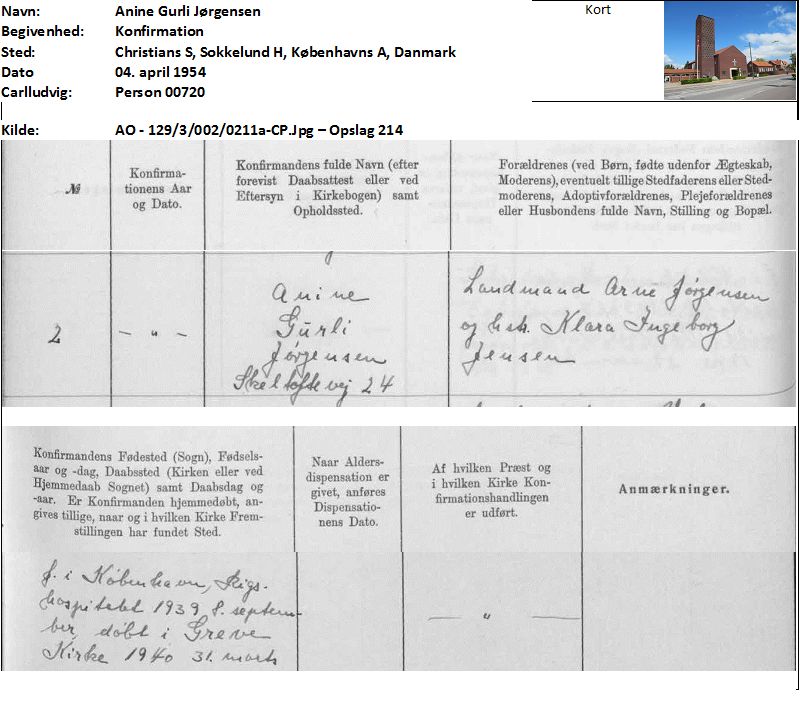 Navn: Anine Gurli Jørgensen
Kort
Begivenhed: Konfirmation
Sted: Christians S, Sokkelund H, Københavns A, Danmark
Dato 04. april 1954
Carlludvig: Person 00720
Kilde: AO - 129/3/002/0211a-CP.Jpg – Opslag 214
№
Konfirma-
tionens Aar
og Dato.
Konfirmandens fulde Navn (efter
forevist Daabsattest eller ved
Eftersyn i Kirkebogen) samt
Opholdssted.
Forældrenes (ved Børn, fødte udenfor Ægteskab,
Moderens), eventuelt tillige Stedfaderens eller Sted-
moderens, Adoptivforældrenes, Plejeforældrenes
eller Husbondens fulde Navn, Stilling og Bopæl.
2
— " —
Anine
Gurli
Jørgensen
Skeltoftevej 24
Landmand Arne Jørgensen
og hstr. Klara Ingeborg
Jensen
Konfirmandens Fødested (Sogn), Fødsels-
aar og -dag, Daabssted (Kirken eller ved
Hjemmedaab Sognet) samt Daabsdag og
-aar. Er Konfirmanden hjemmedøbt, an-
gives tillige, naar og i hvilken Kirke Frem-
stillingen har fundet Sted.
Naar Alders-
dispensation er
givet, anføres
Dispensatio-
nens Dato.
Af hvilken Præst og
i hvilken Kirke Kon-
firmationshandlingen
er udført.
Anmærkninger.
f. i København, Rigs-
hospitalet 1939 8. septem-
ber, døbt i Greve
Kirke 1940 31. marts
— " —